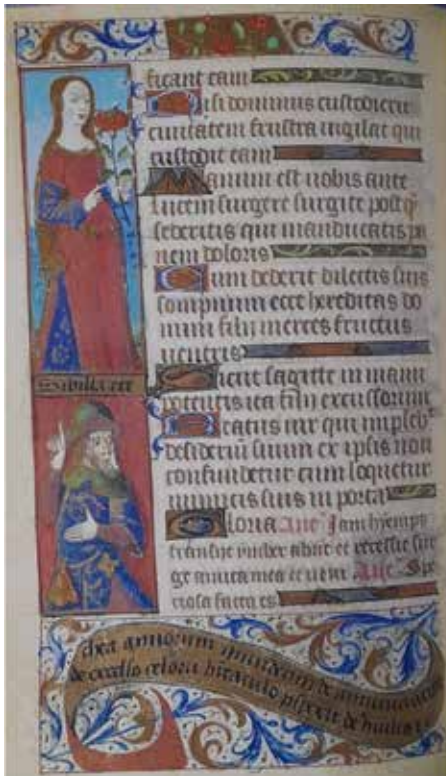 ficant eam
isi dominus custodierit
civitatem frustra vigilat qui
custodit eam
anum est vobis ante
lucem surgere surgite postq̄
sederitis qui manducatis pa
nem doloris
um dederit dilectis suis
sompnum ecce hereditas do
mini filii merces fructus
ventris
icut sagitte in manu
potentis ita filii excussorum
eatus vir qui implev
desideriū suum ex ipsis non
confundetur cum loquetur
inimicis suis in porta
loria Ane Jam hyemps
transiit ymber abiit et recessit sur
ge amica mea et veni Ane Spe
ciosa facta es
Sibilla
annorum
de excelso celorū